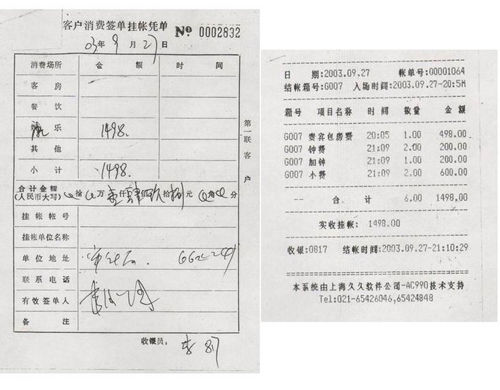 客户消费签单挂帐凭单 No 0002832
03年9月27日
消费场所 金 额 时 间
客 房
餐 饮
娱 乐 1498.
其 他
小 计 1498.
合计金额
(人民币大写) 拾 万 壹仟肆佰玖拾捌元 角 分
挂帐帐号
挂帐单位名称
单位地址
联系电话
有效签单人
备 注
收银员:
第一联 客户
日 期:2003.09.27 帐单号:00001064
结帐箱号:G007 入场时间:2003.09.27-20:5M
箱号 项目名称 时间 数量 金额
G007 贵宾包房费 20:05 1.00 498.00
G007 钟费 21:09 2.00 200.00
G007 加钟 21:09 2.00 200.00
G007 小费 21:09 2.00 600.00
-- 合 计 6.00 1498.00
实收挂帐: 1498.00
收银:0817 结帐时间:2003.09.27-21:10:29
本系统由上海久久软件公司-AC990技术支持
Tel:021-65426046,65424848